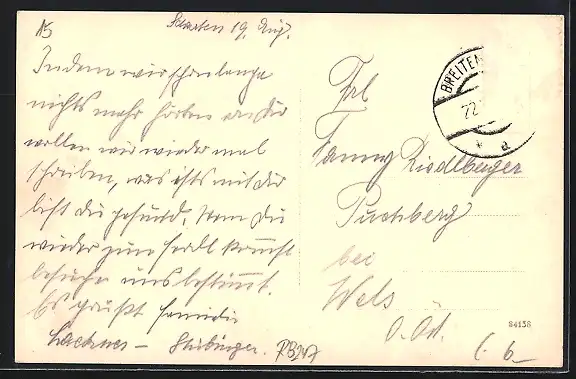 19. Aug.
Indem wir schon lange
nichts mehr hörten von Dir
wollen wir wieder mal
schreiben, was ists mit Dir
bist Du gesund. Wenn Du
wieder zum Ferdl kommst
besuche uns bestimmt.
Es grüßt Familie
Lackner –
Frl
Fanny Riedlberger
Puchberg
bei
Wels
O. Öst.
BREITEN
22.
a
84158